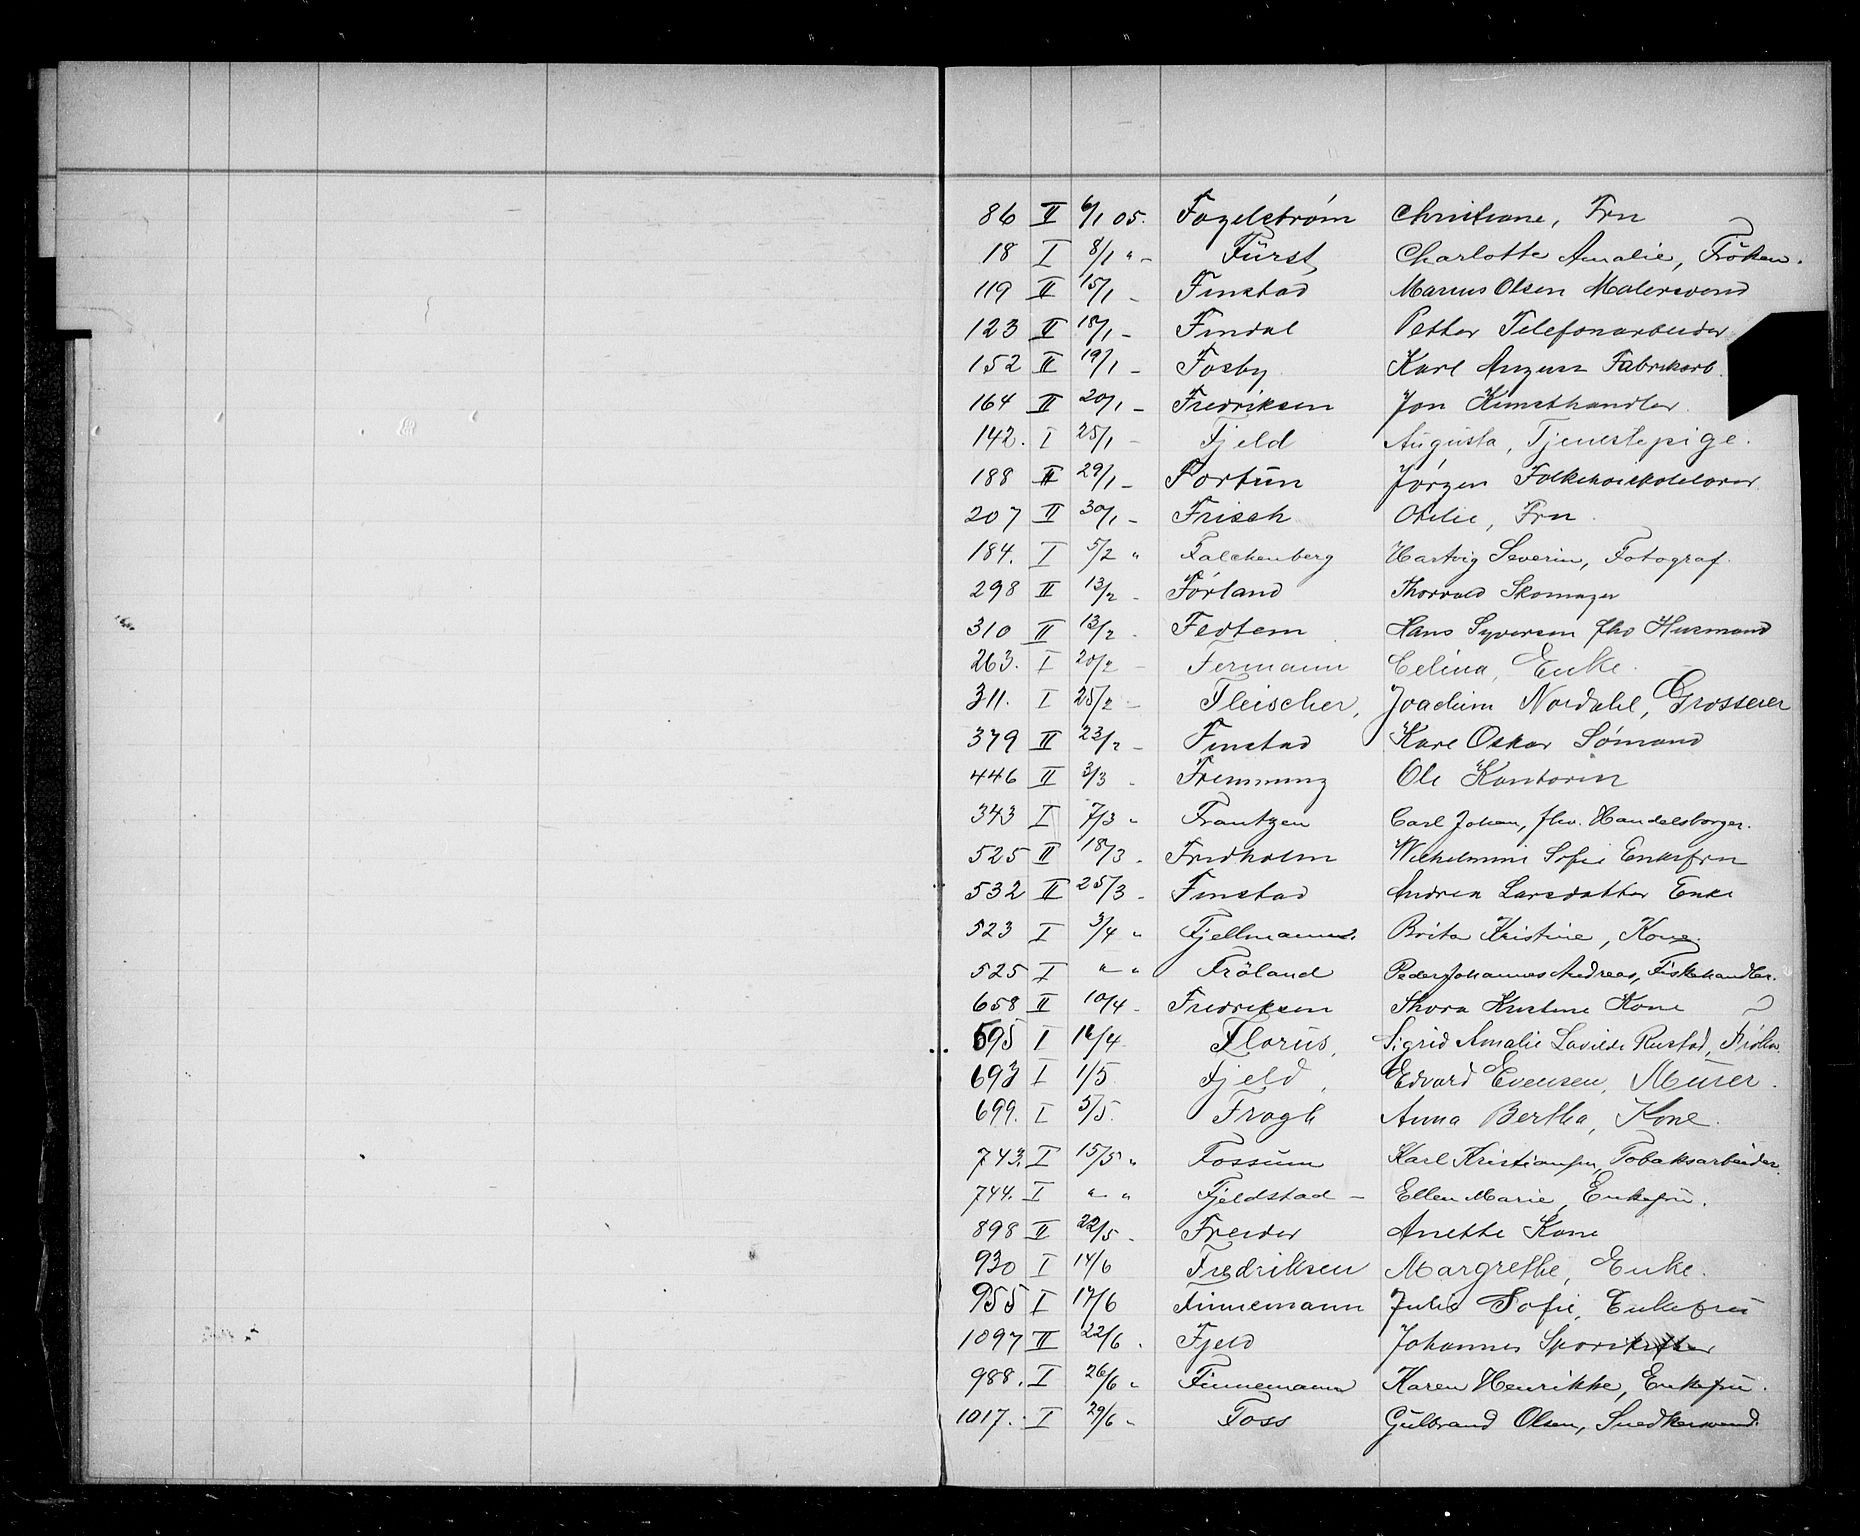 86 II 6/1 05. Fagelstrøm Christiane, Fru
18 I 8/1 " - Fürst, Charlotte Amalie, Fröken.
119 II 15/1 - Finstad Marius Olsen Malersvend
123 II 18/1 - Findal Petter Telefonarbeider
152 II 19/1 - Fosby Karl August Fabrikarb.
164 II 20/1 - Fredriksen Jon Kunsthandler.
142. I 25/1 - Fjeld Augusta, Tjenestepige.
188 II 29/1 - Fortun Jørgen Folkehøiskolelærer
207 II 30/1 - Frisch Otelie, Fru.
184. I 5/2 " Falchenberg Hartvig Severin, Fotograf.
298 II 13/2 - Førland Thorvald Skomager
310 II 13/2 - Fedtem Hans Syversen fhv Husmand
263. I 20/2 - Fermann Celina, Enke.
311. I 25/2 - Fleischer, Joachim Nordahl, Grosserer
379 II 23/2 - Finstad Karl Oskar Sømand
446 II 3/3 - Fremming Ole Kantorin
343 I 7/3 " Frantzen Carl Johan, fhv. Handelsborger.
525 II 18/3 - Fridholm Wilhelmine Sofie Enkefru
532 II 25/3 - Finstad Andrea Larsdatter Enke
523 I 3/4 " Fjellmann. Brita Kristine, Kone.
525 I " " Fröland Peder Johannes Andreas, Fiskehandler.
658 II 10/4 - Fredriksen Thora Kristine Kone
595 I 16/4 Florus, Sigrid Amalie Lovilde Rustad, Frøken.
693 I 1/5 Fjeld, Edvard Evensen, Murer.
699. I 5/5. Frogh Anna Bertha, Kone.
743. I 15/5 " Fossum Karl Kristiansen, Tobaksarbeider.
744. I " " Fjeldstad - Ellen Marie, Enkefru.
898 II 22/5 - Freider Anette Kone
930 I 14/6 Fredriksen Margrethe, Enke.
955 I 17/6 Finnemann Julie Sofie, Enkefru
1097 II 22/6 - Fjeld Johannes
988. I 26/6 " Finnemann Karen Henrikke, Enkefru.
1017. I 29/6 " Foss Gulbrand Olsen, Snedkersvend.